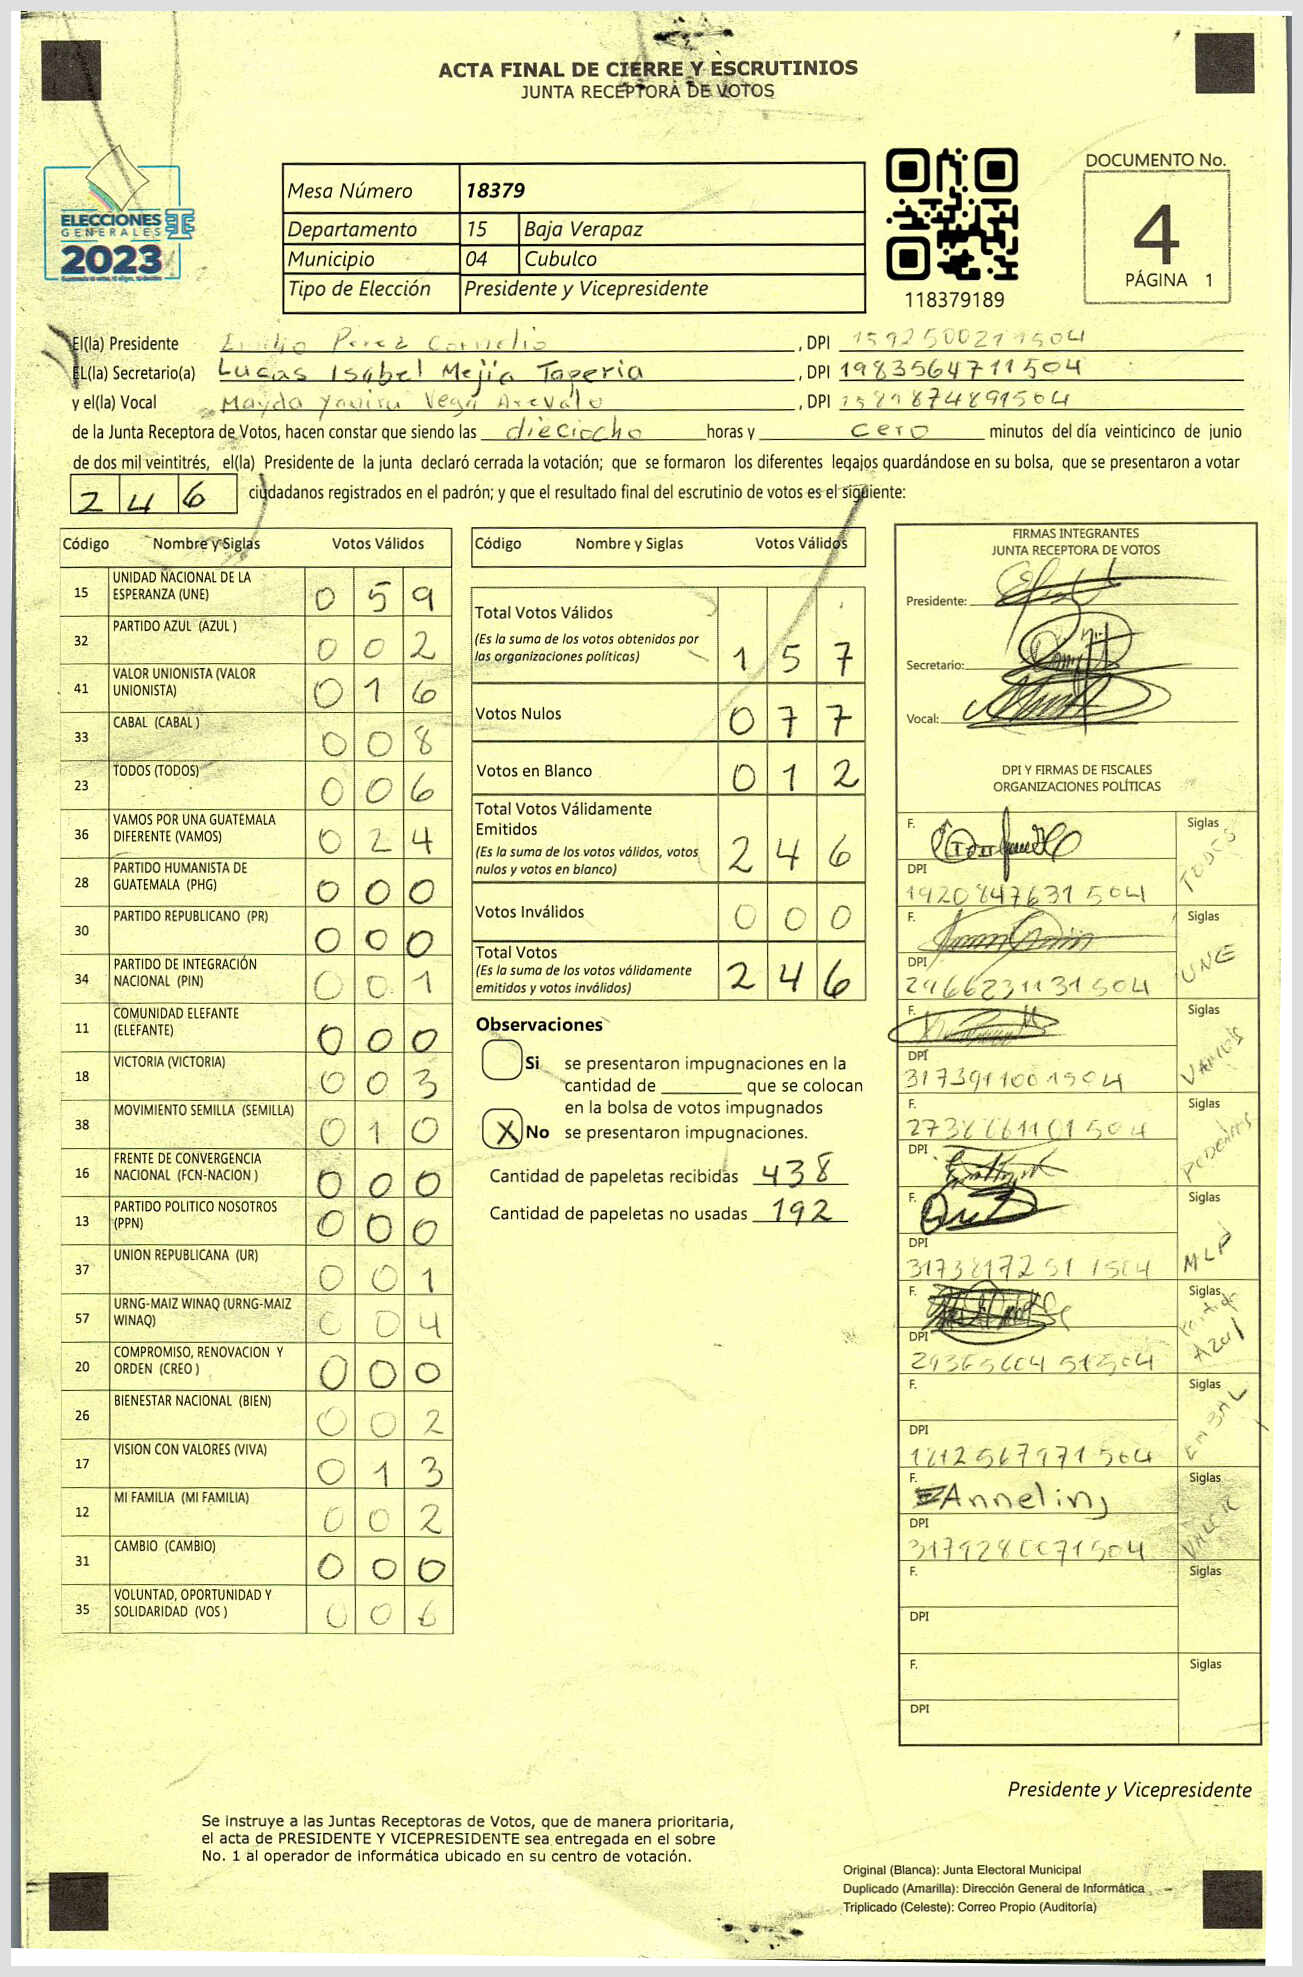 ACTA FINAL DE CIERRE Y ESCRUTINIOS
JUNTA RECEPTORA DE VOTOS
ELECCIONES
GENERALES
2023
Mesa Número 18379
Departamento 15 Baja Verapaz
Municipio 04 Cubulco
Tipo de Elección Presidente y Vicepresidente
118379189
DOCUMENTO No.
4
PÁGINA 1
El(la) Presidente Emilio Perez Cornelio , DPI
EL(la) Secretario(a) Lucas Isabel Mejia Taperia , DPI 1983564711504
y el(la) Vocal Mayda Vega Arevalo , DPI
de la Junta Receptora de Votos, hacen constar que siendo las dieciocho horas y cero minutos del día veinticinco de junio
de dos mil veintitrés, el(la) Presidente de la junta declaró cerrada la votación; que se formaron los diferentes legajos guardándose en su bolsa, que se presentaron a votar
246 ciudadanos registrados en el padrón; y que el resultado final del escrutinio de votos es el siguiente:
Código Nombre y Siglas Votos Válidos
15 UNIDAD NACIONAL DE LA ESPERANZA (UNE) 0 5 9
32 PARTIDO AZUL (AZUL ) 0 0 2
41 VALOR UNIONISTA (VALOR UNIONISTA) 0 1 6
33 CABAL (CABAL ) 0 0 8
23 TODOS (TODOS) 0 0 6
36 VAMOS POR UNA GUATEMALA DIFERENTE (VAMOS) 0 2 4
28 PARTIDO HUMANISTA DE GUATEMALA (PHG) 0 0 0
30 PARTIDO REPUBLICANO (PR) 0 0 0
34 PARTIDO DE INTEGRACIÓN NACIONAL (PIN) 0 0 1
11 COMUNIDAD ELEFANTE (ELEFANTE) 0 0 0
18 VICTORIA (VICTORIA) 0 0 3
38 MOVIMIENTO SEMILLA (SEMILLA) 0 1 0
16 FRENTE DE CONVERGENCIA NACIONAL (FCN-NACION ) 0 0 0
13 PARTIDO POLITICO NOSOTROS (PPN) 0 0 0
37 UNION REPUBLICANA (UR) 0 0 1
57 URNG-MAIZ WINAQ (URNG-MAIZ WINAQ) 0 0 4
20 COMPROMISO, RENOVACION Y ORDEN (CREO ) 0 0 0
26 BIENESTAR NACIONAL (BIEN) 0 0 2
17 VISION CON VALORES (VIVA) 0 1 3
12 MI FAMILIA (MI FAMILIA) 0 0 2
31 CAMBIO (CAMBIO) 0 0 0
35 VOLUNTAD, OPORTUNIDAD Y SOLIDARIDAD (VOS ) 0 0 6
Código Nombre y Siglas Votos Válidos
Total Votos Válidos
(Es la suma de los votos obtenidos por
las organizaciones políticas) 1 5 7
Votos Nulos 0 7 7
Votos en Blanco 0 1 2
Total Votos Válidamente
Emitidos
(Es la suma de los votos válidos, votos
nulos y votos en blanco) 2 4 6
Votos Inválidos 0 0 0
Total Votos
(Es la suma de los votos válidamente
emitidos y votos inválidos) 2 4 6
Observaciones
Si se presentaron impugnaciones en la
cantidad de ________ que se colocan
en la bolsa de votos impugnados
X No se presentaron impugnaciones.
Cantidad de papeletas recibidas 438
Cantidad de papeletas no usadas 192
FIRMAS INTEGRANTES
JUNTA RECEPTORA DE VOTOS
Presidente:
Secretario:
Vocal:
DPI Y FIRMAS DE FISCALES
ORGANIZACIONES POLÍTICAS
F. Siglas TODOS
DPI
1920847631504
F. Siglas UNE
DPI
2966231131504
F. Siglas VAMOS
DPI
3173911001504
F. Siglas PODEMOS
DPI
F. Siglas MLP
DPI
F. Siglas Partido Azul
DPI
F. Siglas
DPI
F. Anneliny Siglas VALOR
DPI
F. Siglas
DPI
F. Siglas
DPI
Presidente y Vicepresidente
Se instruye a las Juntas Receptoras de Votos, que de manera prioritaria,
el acta de PRESIDENTE Y VICEPRESIDENTE sea entregada en el sobre
No. 1 al operador de informática ubicado en su centro de votación.
Original (Blanca): Junta Electoral Municipal
Duplicado (Amarilla): Dirección General de Informática
Triplicado (Celeste): Correo Propio (Auditoría)